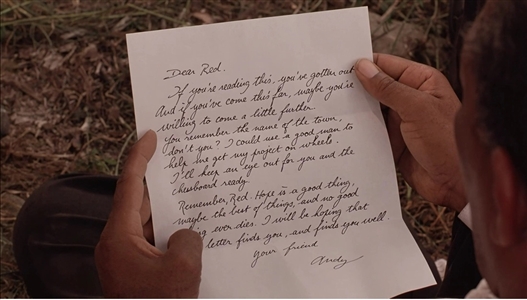 Dear Red.
If you're reading this, you've gotten out
And if you've come this far, maybe you're
willing to come a little further.
You remember the name of the town,
don't you? I could use a good man to
help me get my project on wheels.
I'll keep an eye out for you and the
chessboard ready.
Remember, Red. Hope is a good thing,
maybe the best of things, and no good
ever dies. I will be hoping that
letter finds you, and finds you well
Your friend
Andy